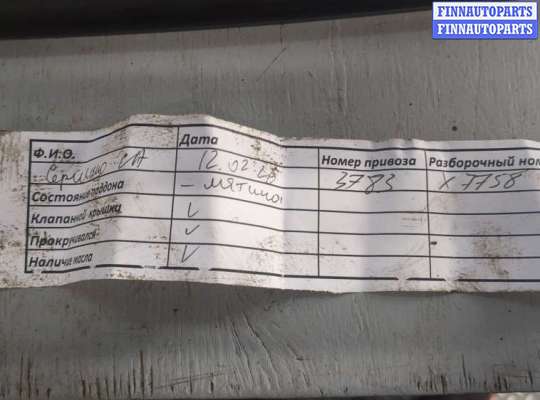 FINNAUTOPARTS
FINNAUTOPARTS
Ф.И.О. Дата Номер привоза Разборочный ном
12.02 3783 X 7758
Состояние поддона - мятина
Клапанной крышки ✓
Прокручивался ✓
Наличие масла ✓